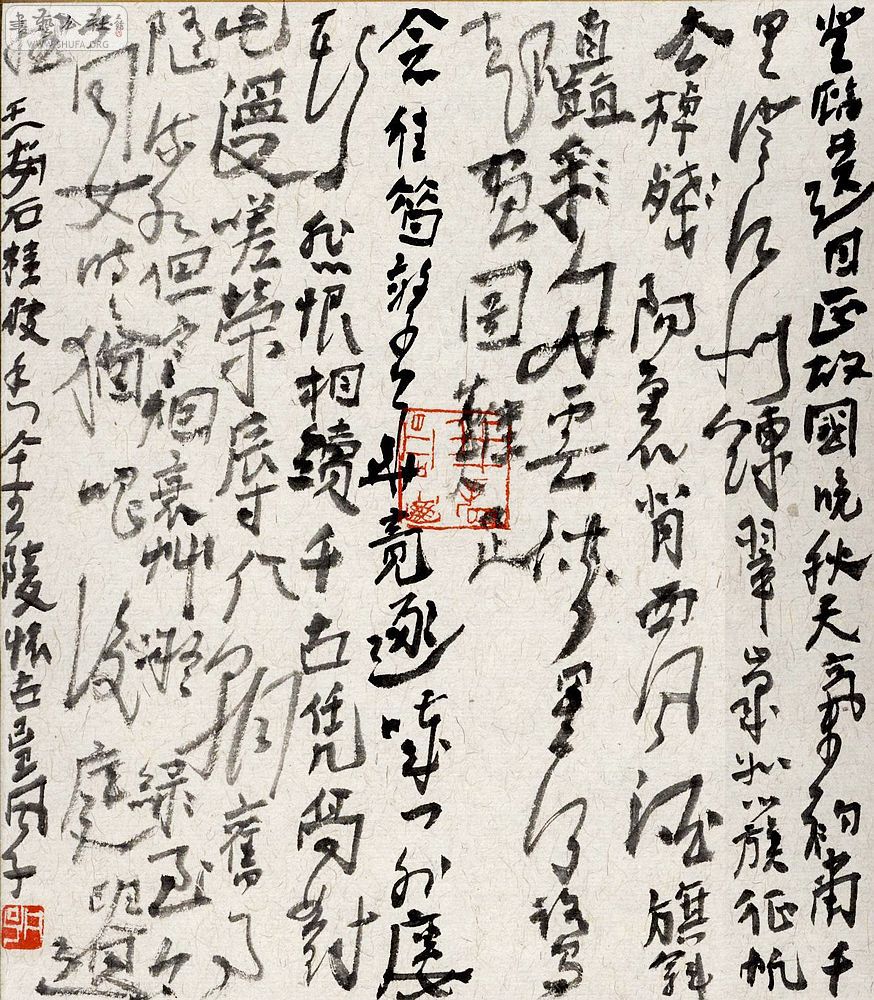 登臨送目正故國晚秋天氣初肅千
里澄江似練翠峰如簇征帆
去棹殘陽裏背西風酒旗斜
矗彩舟雲淡星河鷺
起畫圖難足
念往昔繁華竟逐嘆門外樓
頭悲恨相續千古憑高對
此漫嗟榮辱六朝舊事
隨流水但寒煙衰艸凝綠至今
商女時時猶唱後庭遺
曲 王安石桂枝香 金陵懷古
WWW.SHUFA.ORG